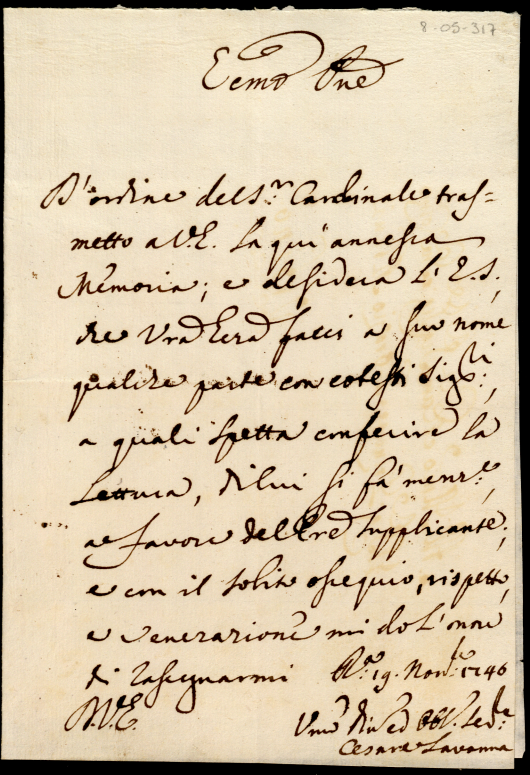 8-05-317
Ecmo Pne
D'ordine del S.r Cardinale tras=
metto a V.E. la qui annessa
Memoria; e desidera l'E.S.,
che Vra Ecza facci a suo nome
qualche parte con cotesti Sig.ri,
a quali spetta conferire la
Lettura, di lui si fà menz.e,
a favore del Pre supplicante;
e con il solito ossequio, rispetto,
e venerazione mi do l'onore
di rasegnarmi R.a 19. Nov.bre 1746
D.V.E.
Vmo Obl. Se.re
Cesare Lavanna